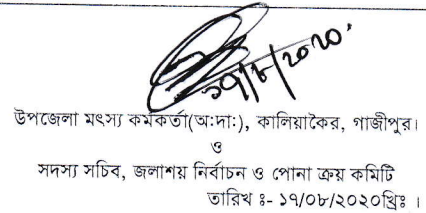 ১৭/৮/২০২০
উপজেলা মৎস্য কর্মকর্তা(অ:দা:), কালিয়াকৈর, গাজীপুর।
ও
সদস্য সচিব, জলাশয় নির্বাচন ও পোনা ক্রয় কমিটি
তারিখ ঃ- ১৭/০৮/২০২০খ্রিঃ ।